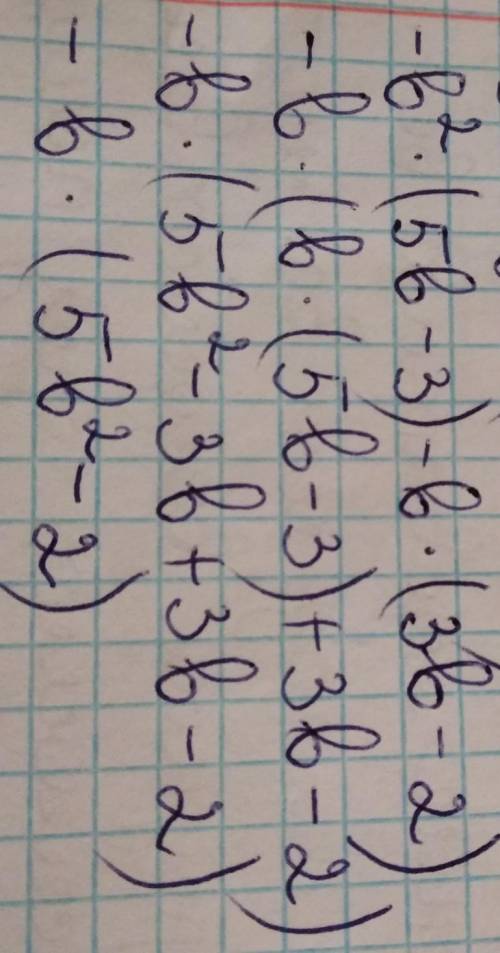 -b²·(5b-3)-b·(3b-2)
-b·(b·(5b-3)+3b-2)
-b·(5b²-3b+3b-2)
-b·(5b²-2)